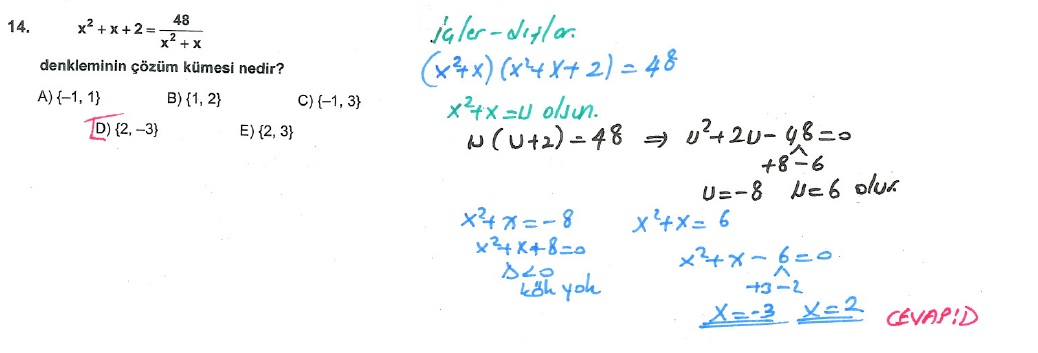 14. x² + x + 2 = 48 / (x² + x)
denkleminin çözüm kümesi nedir?
A) {–1, 1} B) {1, 2} C) {–1, 3}
D) {2, –3} E) {2, 3}
içler-dışlar.
(x²+x)(x²+x+2) = 48
x²+x=U olsun.
U(U+2)=48 ⇒ U²+2U-48=0
+8 -6
U=-8 U=6 olur.
x²+x=-8 x²+x=6
x²+x+8=0 x²+x-6=0
Δ<0 +3 -2
kök yok
x=-3 x=2 CEVAP:D